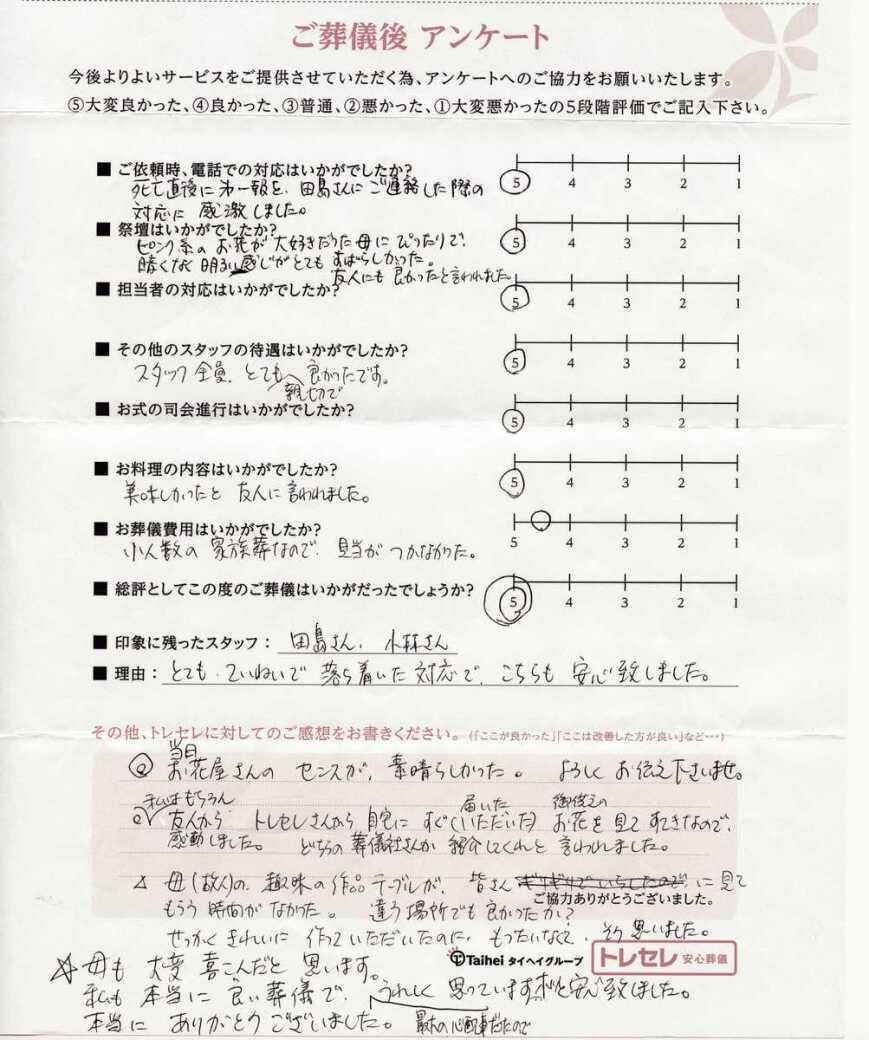 ご葬儀後 アンケート
今後よりよいサービスをご提供させていただく為、アンケートへのご協力をお願いいたします。
⑤大変良かった、④良かった、③普通、②悪かった、①大変悪かったの5段階評価でご記入下さい。
■ ご依頼時、電話での対応はいかがでしたか?
5 4 3 2 1
死亡直後に第一報を、田島さんにご連絡した際の
対応に 感激しました。
■ 祭壇はいかがでしたか?
5 4 3 2 1
ピンク系の お花が 大好きだった母に ぴったりで、
暗くなく 明るい感じがとても すばらしかった。
友人にも 良かったと言われました。
■ 担当者の対応はいかがでしたか?
5 4 3 2 1
■ その他のスタッフの待遇はいかがでしたか?
5 4 3 2 1
スタッフ 全員、とても 良かったです。
親切で
■ お式の司会進行はいかがでしたか?
5 4 3 2 1
■ お料理の内容はいかがでしたか?
5 4 3 2 1
美味しかったと 友人に言われました。
■ お葬儀費用はいかがでしたか?
5 4 3 2 1
小人数の 家族葬なので、見当が つかなかった。
■ 総評としてこの度のご葬儀はいかがだったでしょうか?
5 4 3 2 1
■ 印象に残ったスタッフ: 田島さん、小林さん
■ 理由: とても、ていねいで 落ち着いた 対応で、こちらも 安心致しました。
その他、トレセレに対してのご感想をお書きください。(「ここが良かった」「ここは改善した方が良い」など・・・)
当日
◎ お花屋さんの センスが、素晴らしかった。 よろしく お伝え下さいませ。
私はもちろん 届いた 御供えの
友人から トレセレさんから 自宅に すぐ(いただいた) お花を 見て すてきなので、
感動しました。 どちらの 葬儀社さんか 紹介してくれと 言われました。
△ 母(故人)の、趣味の作品テーブルが、皆さん に 見て
ご協力ありがとうございました。
もらう 時間が なかった。 違う場所でも 良かったか?
せっかく きれいに 作っていただいたのに、もったいなくて、そう 思いました。
Taihei タイヘイグループ トレセレ 安心葬儀
☆ 母も 大変 喜こんだと 思います。
私も 本当に 良い 葬儀で、うれしく 思っています 安心致しました。
本当に ありがとう ございました。 最大の心配事だったので